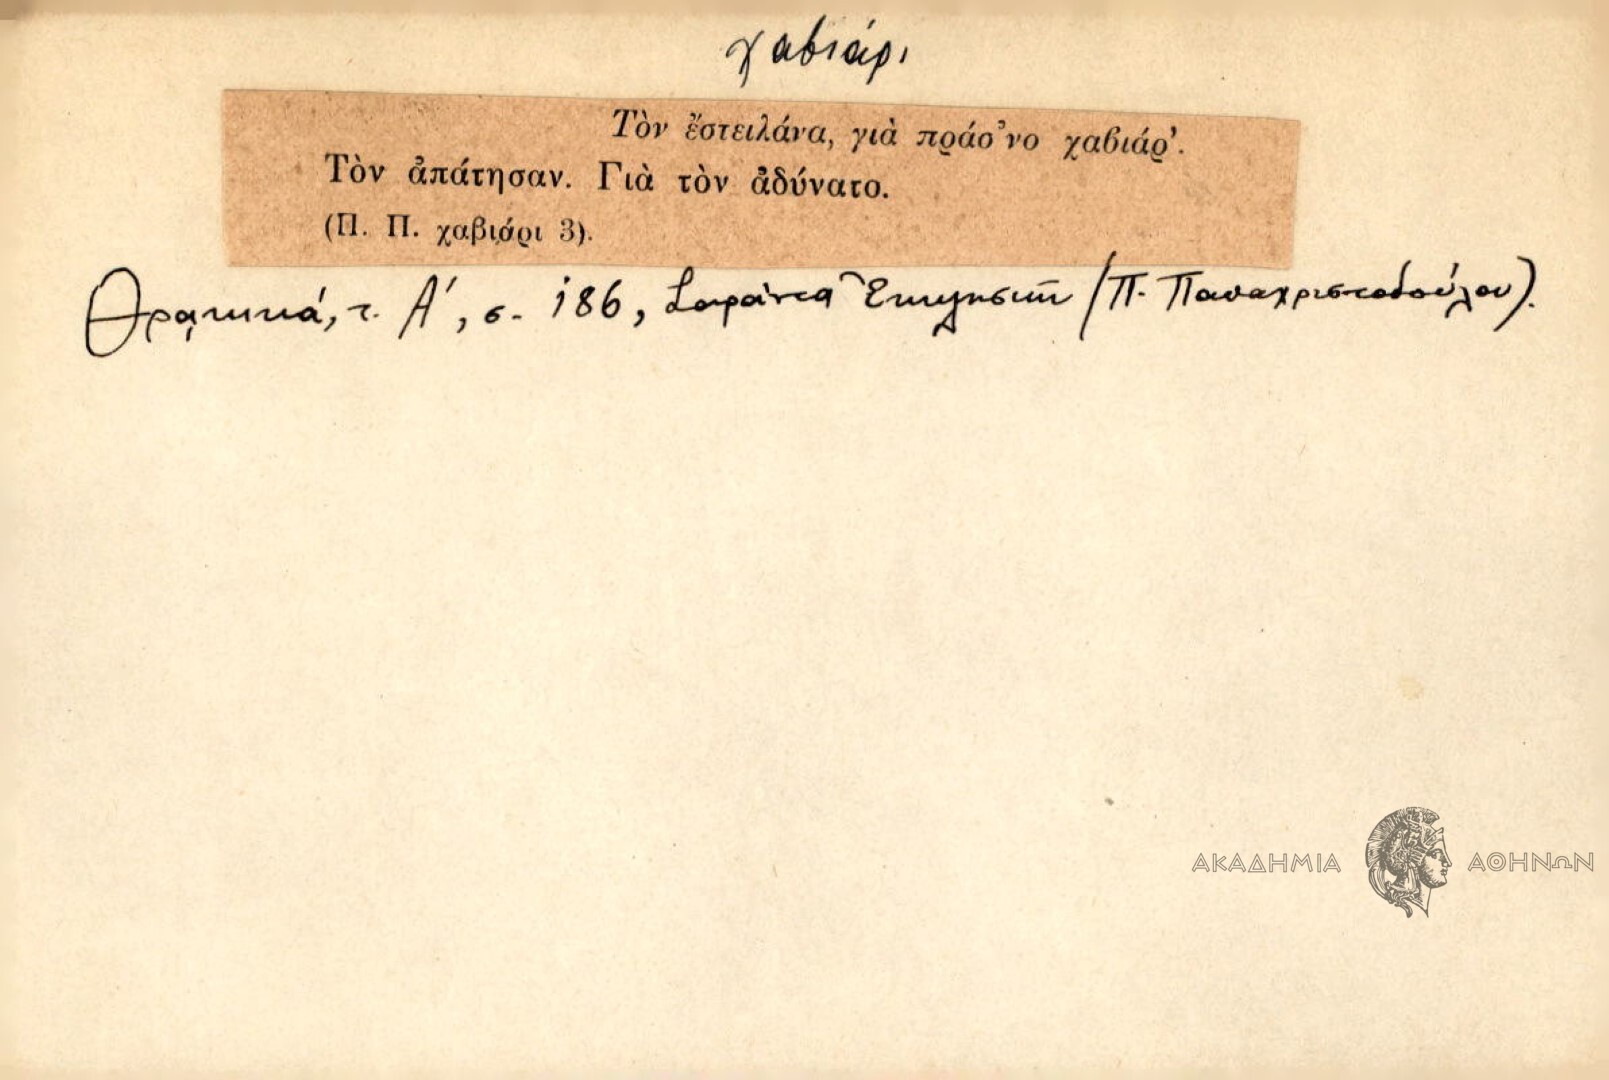 χαβιάρι
Τὸν ἔστειλάνα, γιὰ πράσ'νο χαβιάρ'.
Τὸν ἀπάτησαν. Γιὰ τὸν ἀδύνατο.
(Π. Π. χαβιάρι 3).
Θρακικά, τ. Α', σ. 186, Σαράντα Ἐκκλησιῶν (Π. Παπαχριστοδούλου).
ΑΚΑΔΗΜΙΑ ΑΘΗΝΩΝ